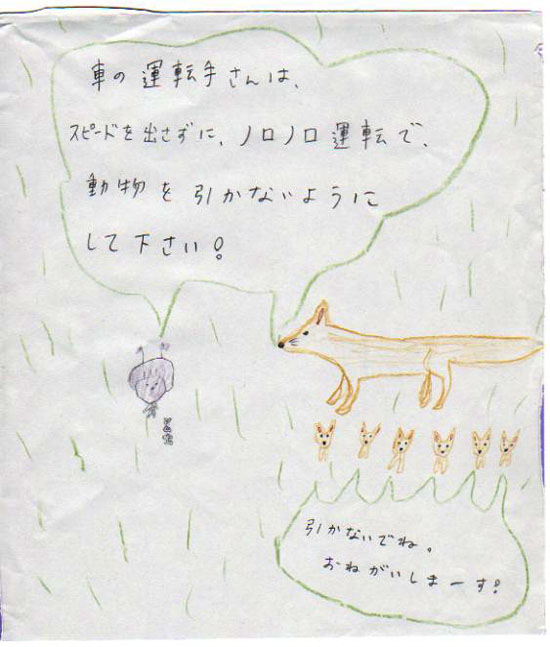 車の運転手さんは、
スピードを出さずに、ノロノロ運転で、
動物を引かないように
して下さい!
引かないでね。
おねがいしまーす!